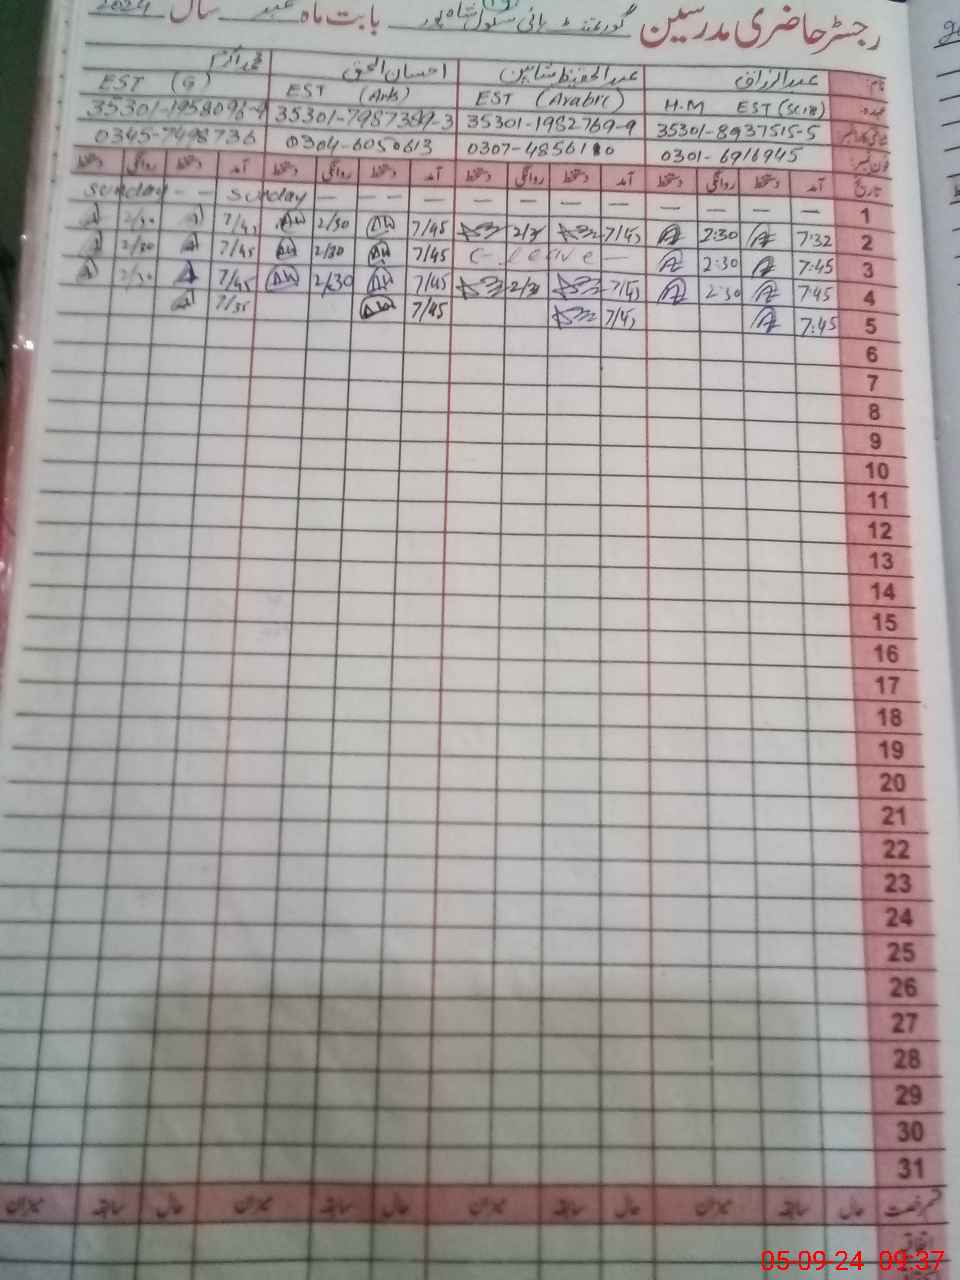 رجسٹر حاضری مدرسین گورنمنٹ ہائی سکول شاہ پور بابت ماہ ستمبر سال 2024
نام: عبدالرزاق عبدالحفیظ شاہین احسان الحق محمد اکرم
عہدہ: H.M EST (Sci) EST (Arabic) EST (Arts) EST (G)
35301-8937515-5 35301-1982769-9 35301-7987389-3
فون نمبر: 0301-6916945 0307-4856110 0304-6050613 0345-7498736
تاریخ آمد دستخط روانگی دستخط آمد دستخط روانگی دستخط آمد دستخط روانگی دستخط آمد دستخط روانگی دستخط
1 — — — — — — — — — — Sunday — — Sunday
2 7:32 2:30 7/45 2/30 7/45 2/30 7/45 2/30
3 7:45 2:30 C-leave — 7/45 2/30 7/45 2/30
4 7:45 2:30 7/45 2/30 7/45 2/30 7/45 2/30
5 7:45 7/45 7/45 7/35
6
7
8
9
10
11
12
13
14
15
16
17
18
19
20
21
22
23
24
25
26
27
28
29
30
31
قسم رخصت حال سابقہ میزان حال سابقہ میزان حال سابقہ میزان حال سابقہ میزان
اتفاقیہ
05-09-24 09:37